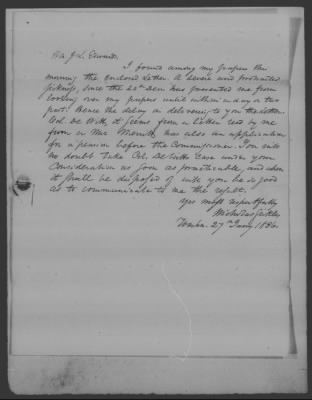 Mr J. L. Edwards,
I found among my papers this
morning the enclosed letter. A severe and protracted
sickness, since the 22d Decr has prevented me from
looking over my papers until within a day or two
past. Hence the delay in delivering to you the letter.
Col. De Witt, it seems from a letter recd by me
from a Mr. Merrith, has also an application
for a pension before the Commissioner. You will
no doubt take Col. De Witts Case under your
Consideration as soon as practicable, and when
it shall be disposed of will you be so good
as to communicate to me the result.
Yrs most respectfully
Nicholas
Washn. 27th Jany 1836.